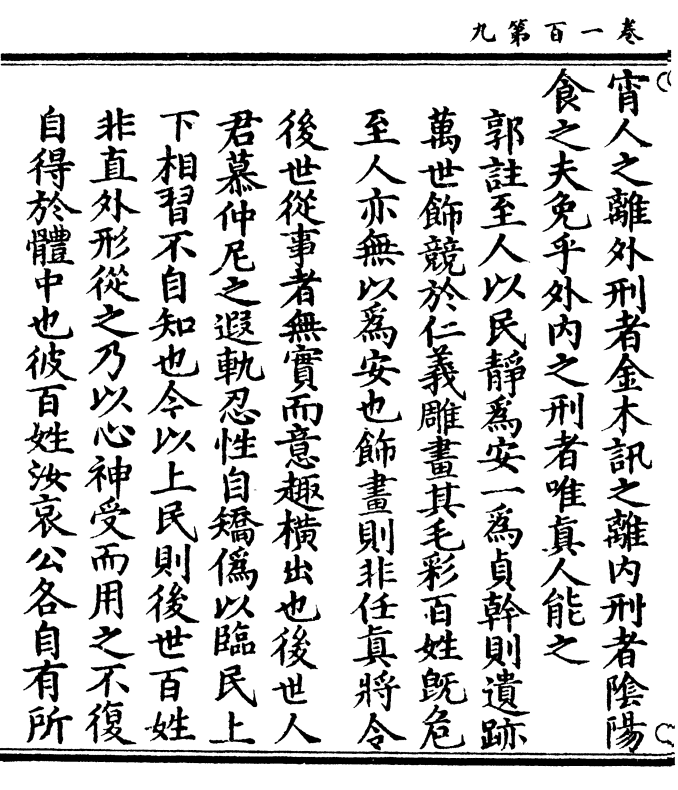 卷一百第九
宵人之離外刑者金木訊之離内刑者陰陽
食之夫免乎外内之刑者唯真人能之
郭註至人以民靜爲安一爲貞幹則遺跡
萬世飾競於仁義雕畫其毛彩百姓旣危
至人亦無以爲安也飾畫則非任真將令
後世從事者無實而意趣横出也後世人
君慕仲尼之遐軌忍性自矯僞以臨民上
下相習不自知也今以上民則後世百姓
非直外形從之乃以心神受而用之不復
自得於體中也彼百姓汝哀公各自有所